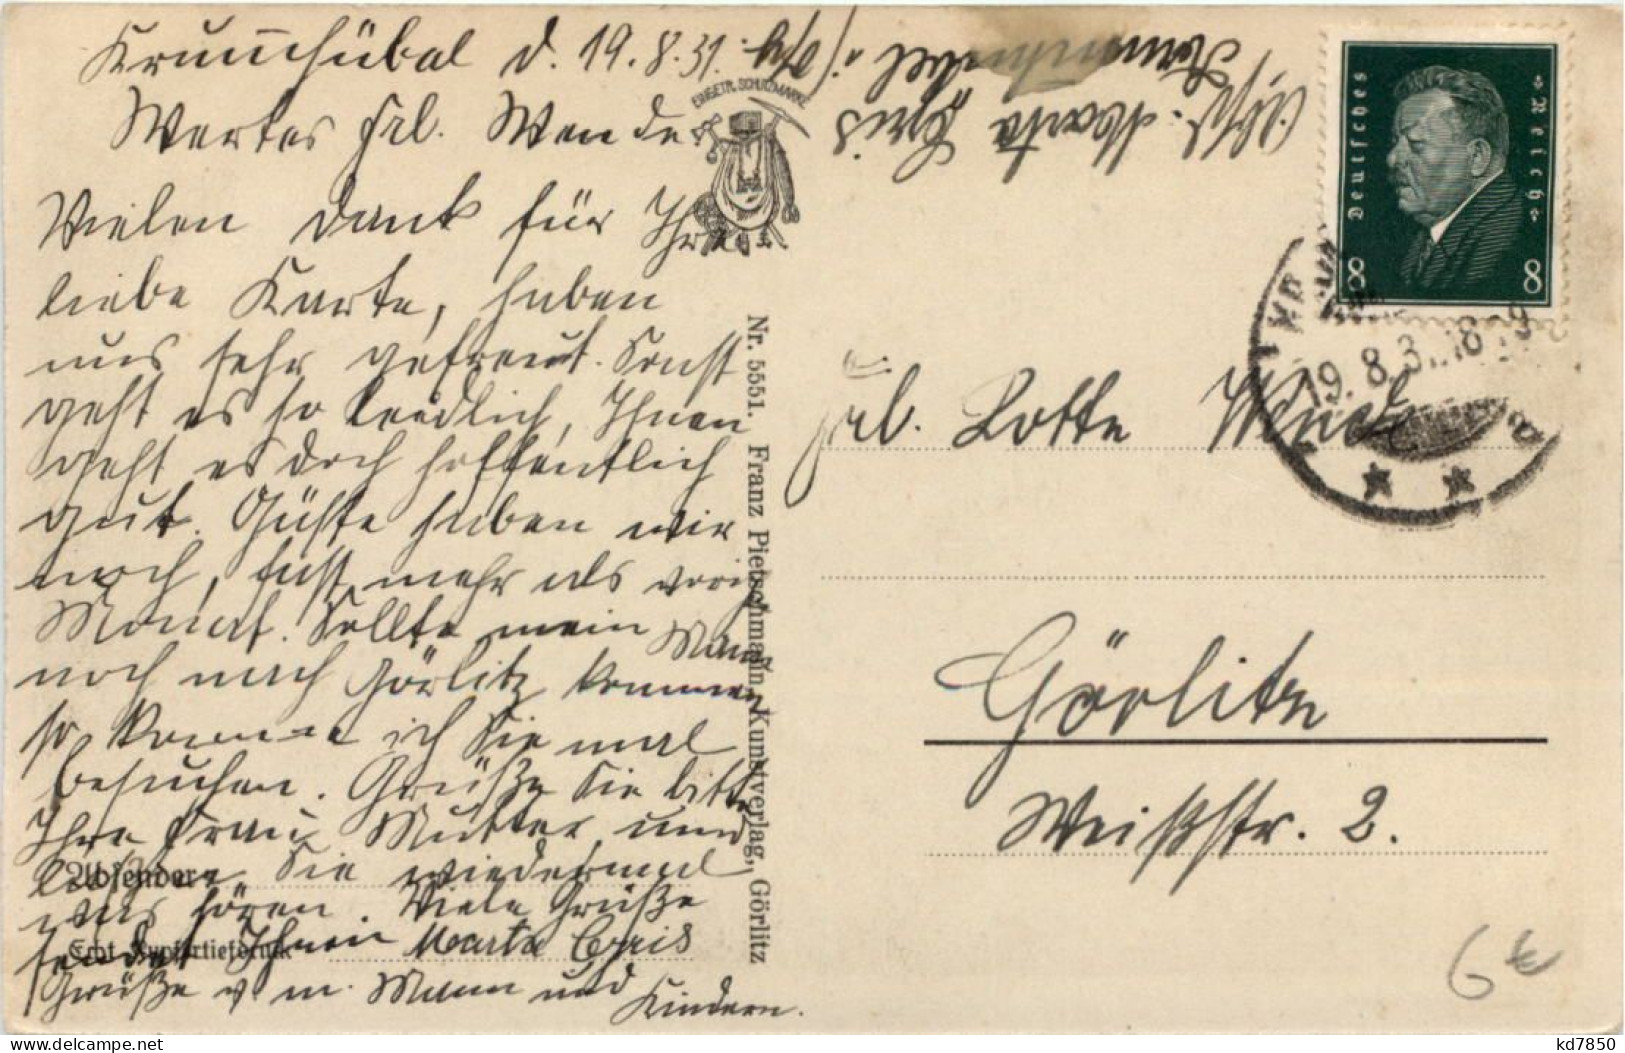 Krummhübel d. 19.8.31.
Wertes Frl. Wende
Vielen Dank für Ihre
liebe Karte, haben
uns sehr gefreut. Sonst
geht es so leidlich, Ihnen
geht es doch hoffentlich
gut. Gäste haben wir
noch, fast mehr als vorig
Monat. Sollte mein Mann
noch nach Görlitz kommen
so komme ich Sie mal
besuchen. Grüße Sie bitte
Ihre Frau Mutter und
lassen Sie wiedermal
was hören. Viele Grüße
sendet Ihnen Marta Gris
Grüße v. m. Mann und
Kindern.
Absender:
Echt Kupfertiefdruck
EINGETR. SCHUTZMARKE
Nr. 5551. Franz Pietschmann, Kunstverlag, Görlitz
Abs. Marta Gris
Deutsches Reich
8 8
19.8.31.18-19
Frl. Lotte Wende
Görlitz
Weißstr. 2.
6€
kd7850
delcampe.net